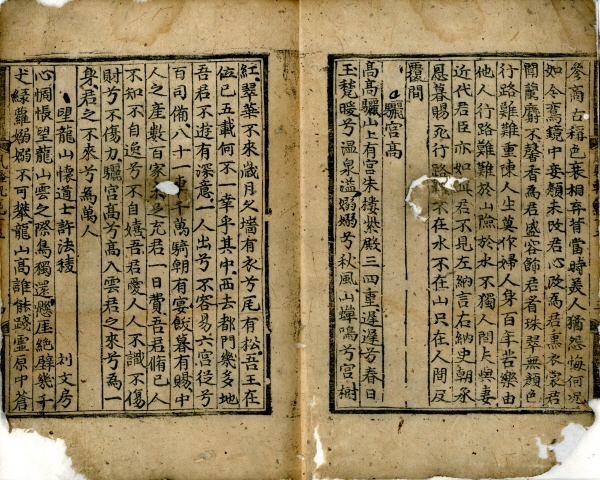 參商古稱色衰相弃背當時美人猶怨悔何况
如今鸞鏡中妾顔未改君心改爲君熏衣裳君
聞蘭麝不馨香爲君盛容飾君看珠翠無顔色
行路難難重陳人生莫作婦人身百年苦樂由
他人行路難難於山險於水不獨人間夫與妻
近代君臣亦如此君不見左納言右納史朝承
恩暮賜死行路難不在水不在山只在人間反
覆間
驪宮高
高高驪山上有宮朱樓紫殿三四重遲遲兮春日
玉甃暖兮溫泉溢嫋嫋兮秋風山蟬鳴兮宮樹
紅翠華不來歲月久墻有衣兮瓦有松吾王在
位已五載何不一幸乎其中西去都門幾多地
吾君不遊有深意一人出兮不容易六宮從兮
百司備八十一車千萬騎朝有宴飫暮有賜中
人之産數百家未足充君一日費吾君脩已人
不知不自逸兮不自嬉吾君愛人人不識不傷
財兮不傷力驪宮高兮高入雲君之來兮爲一
身君之不來兮爲萬人
望龍山懷道士許法稜 刘文房
心惆悵望龍山雲之際鳥獨還懸崖絶壁幾千
丈緑蘿嫋嫋不可攀龍山高誰能踐靈原中蒼